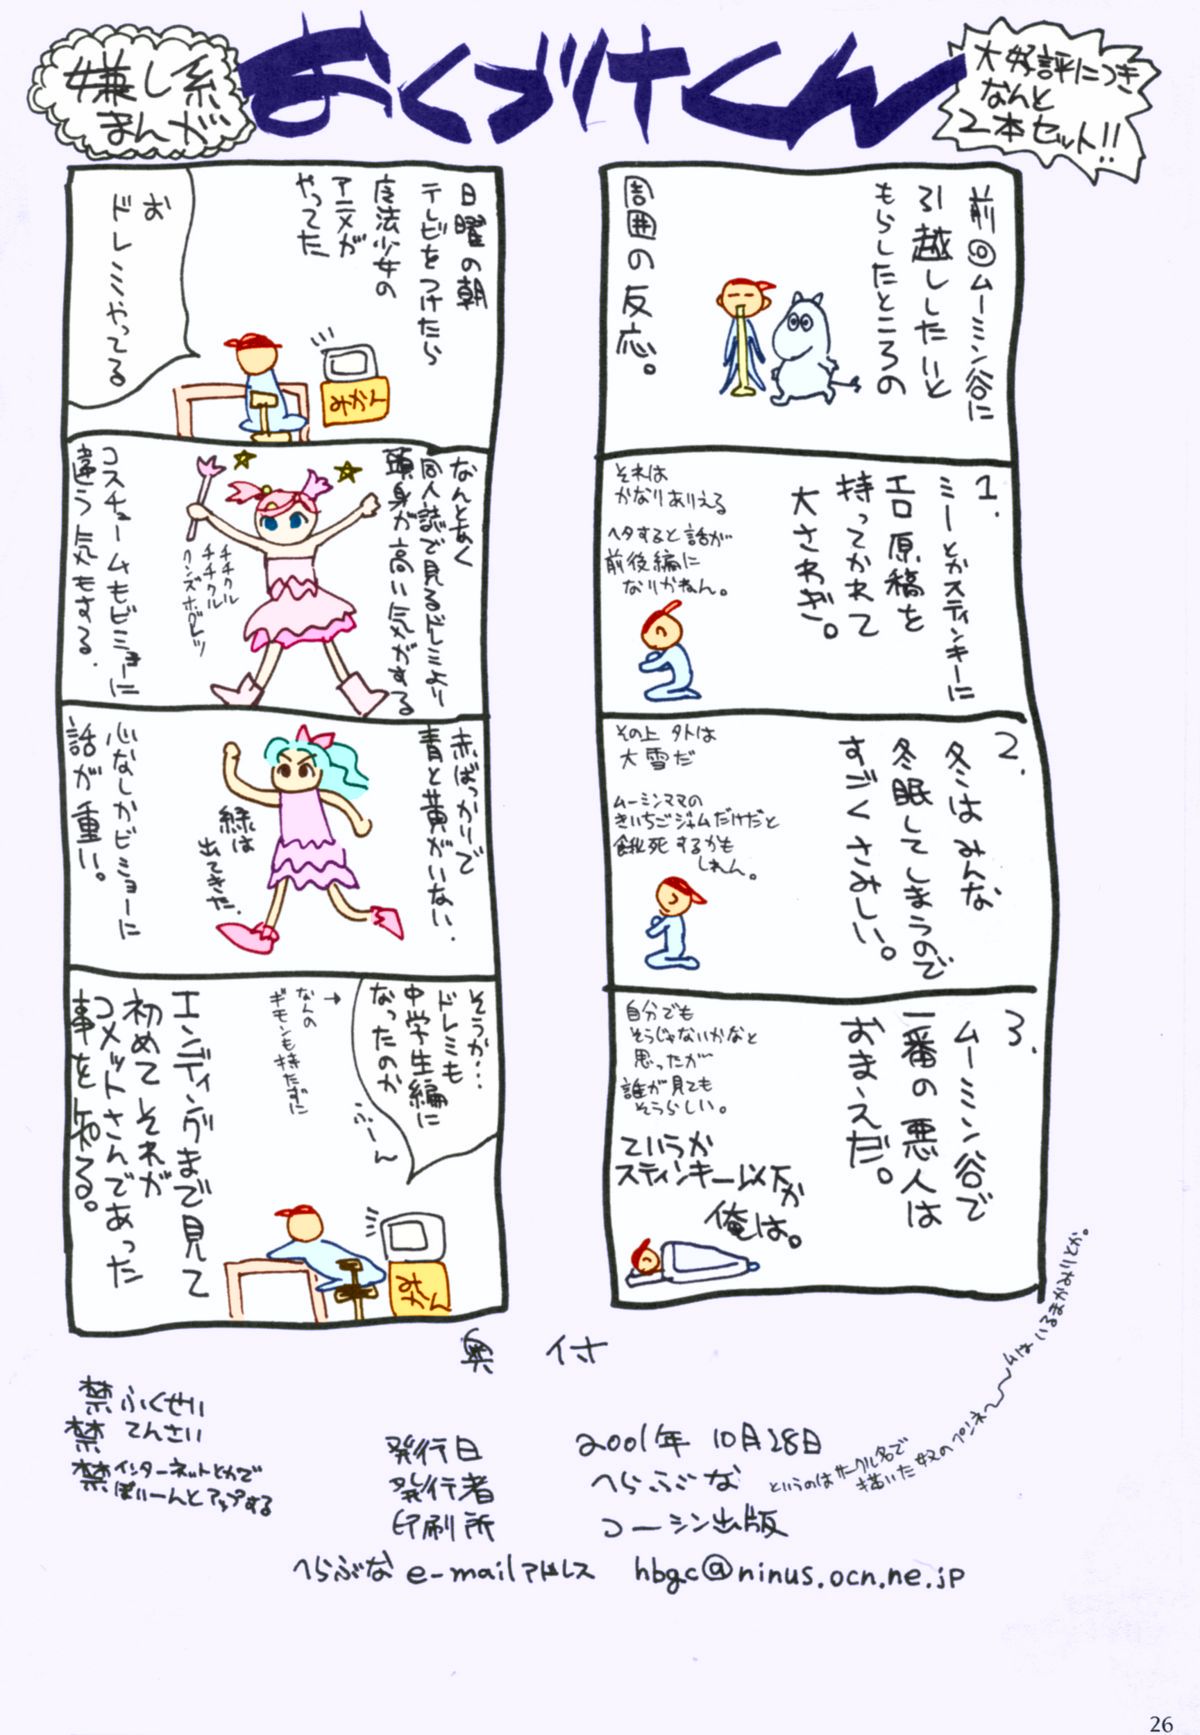 嫌し系
まんが
おくづけくん
大好評につき
なんと
2本セット!!
前回ムーミン谷に
引越ししたいと
もらしたところの
周囲の反応。
1.
ミーとかスティンキーに
エロ原稿を
持ってかれて
大さわぎ。
それは
かなりありえる
ヘタすると話が
前後編に
なりかねん。
2.
冬はみんな
冬眠してしまうので
すごくさみしい。
その上外は
大雪だ
ムーミンママの
きいちごジャムだけだと
餓死するかも
しれん。
3.
ムーミン谷で
一番の悪人は
おまえだ。
自分でも
そうじゃないかなと
思ったが
誰が見ても
そうらしい。
ていうか
スティンキー以下か
俺は。
日曜の朝
テレビをつけたら
魔法少女の
アニメが
やってた
お
ドレミやってる
みかん
なんとなく
同人誌で見るドレミより
頭身が高い気がする
チチクル
チチクル
クンズホグレツ
コスチュームもビミョーに
違う気もする.
赤ばっかりで
青と黄がいない.
緑は
出てきた.
心なしかビミョーに
話が重い。
そうか…
ドレミも
中学生編に
なったのか
ふーん
→
なんの
ギモンも持たずに
エンディングまで見て
初めてそれが
コメットさんであった
事を知る。
みかん
奥付
禁ふくせい
禁てんさい
禁インターネットとかで
ぼいーんとアップする
発行日 2001年10月28日
発行者 へらぶな
というのはサークル名で
描いた奴のペンネームはいるまかみりとか。
印刷所 コーシン出版
へらぶなe-mailアドレス hbgc@ninus.ocn.ne.jp
26